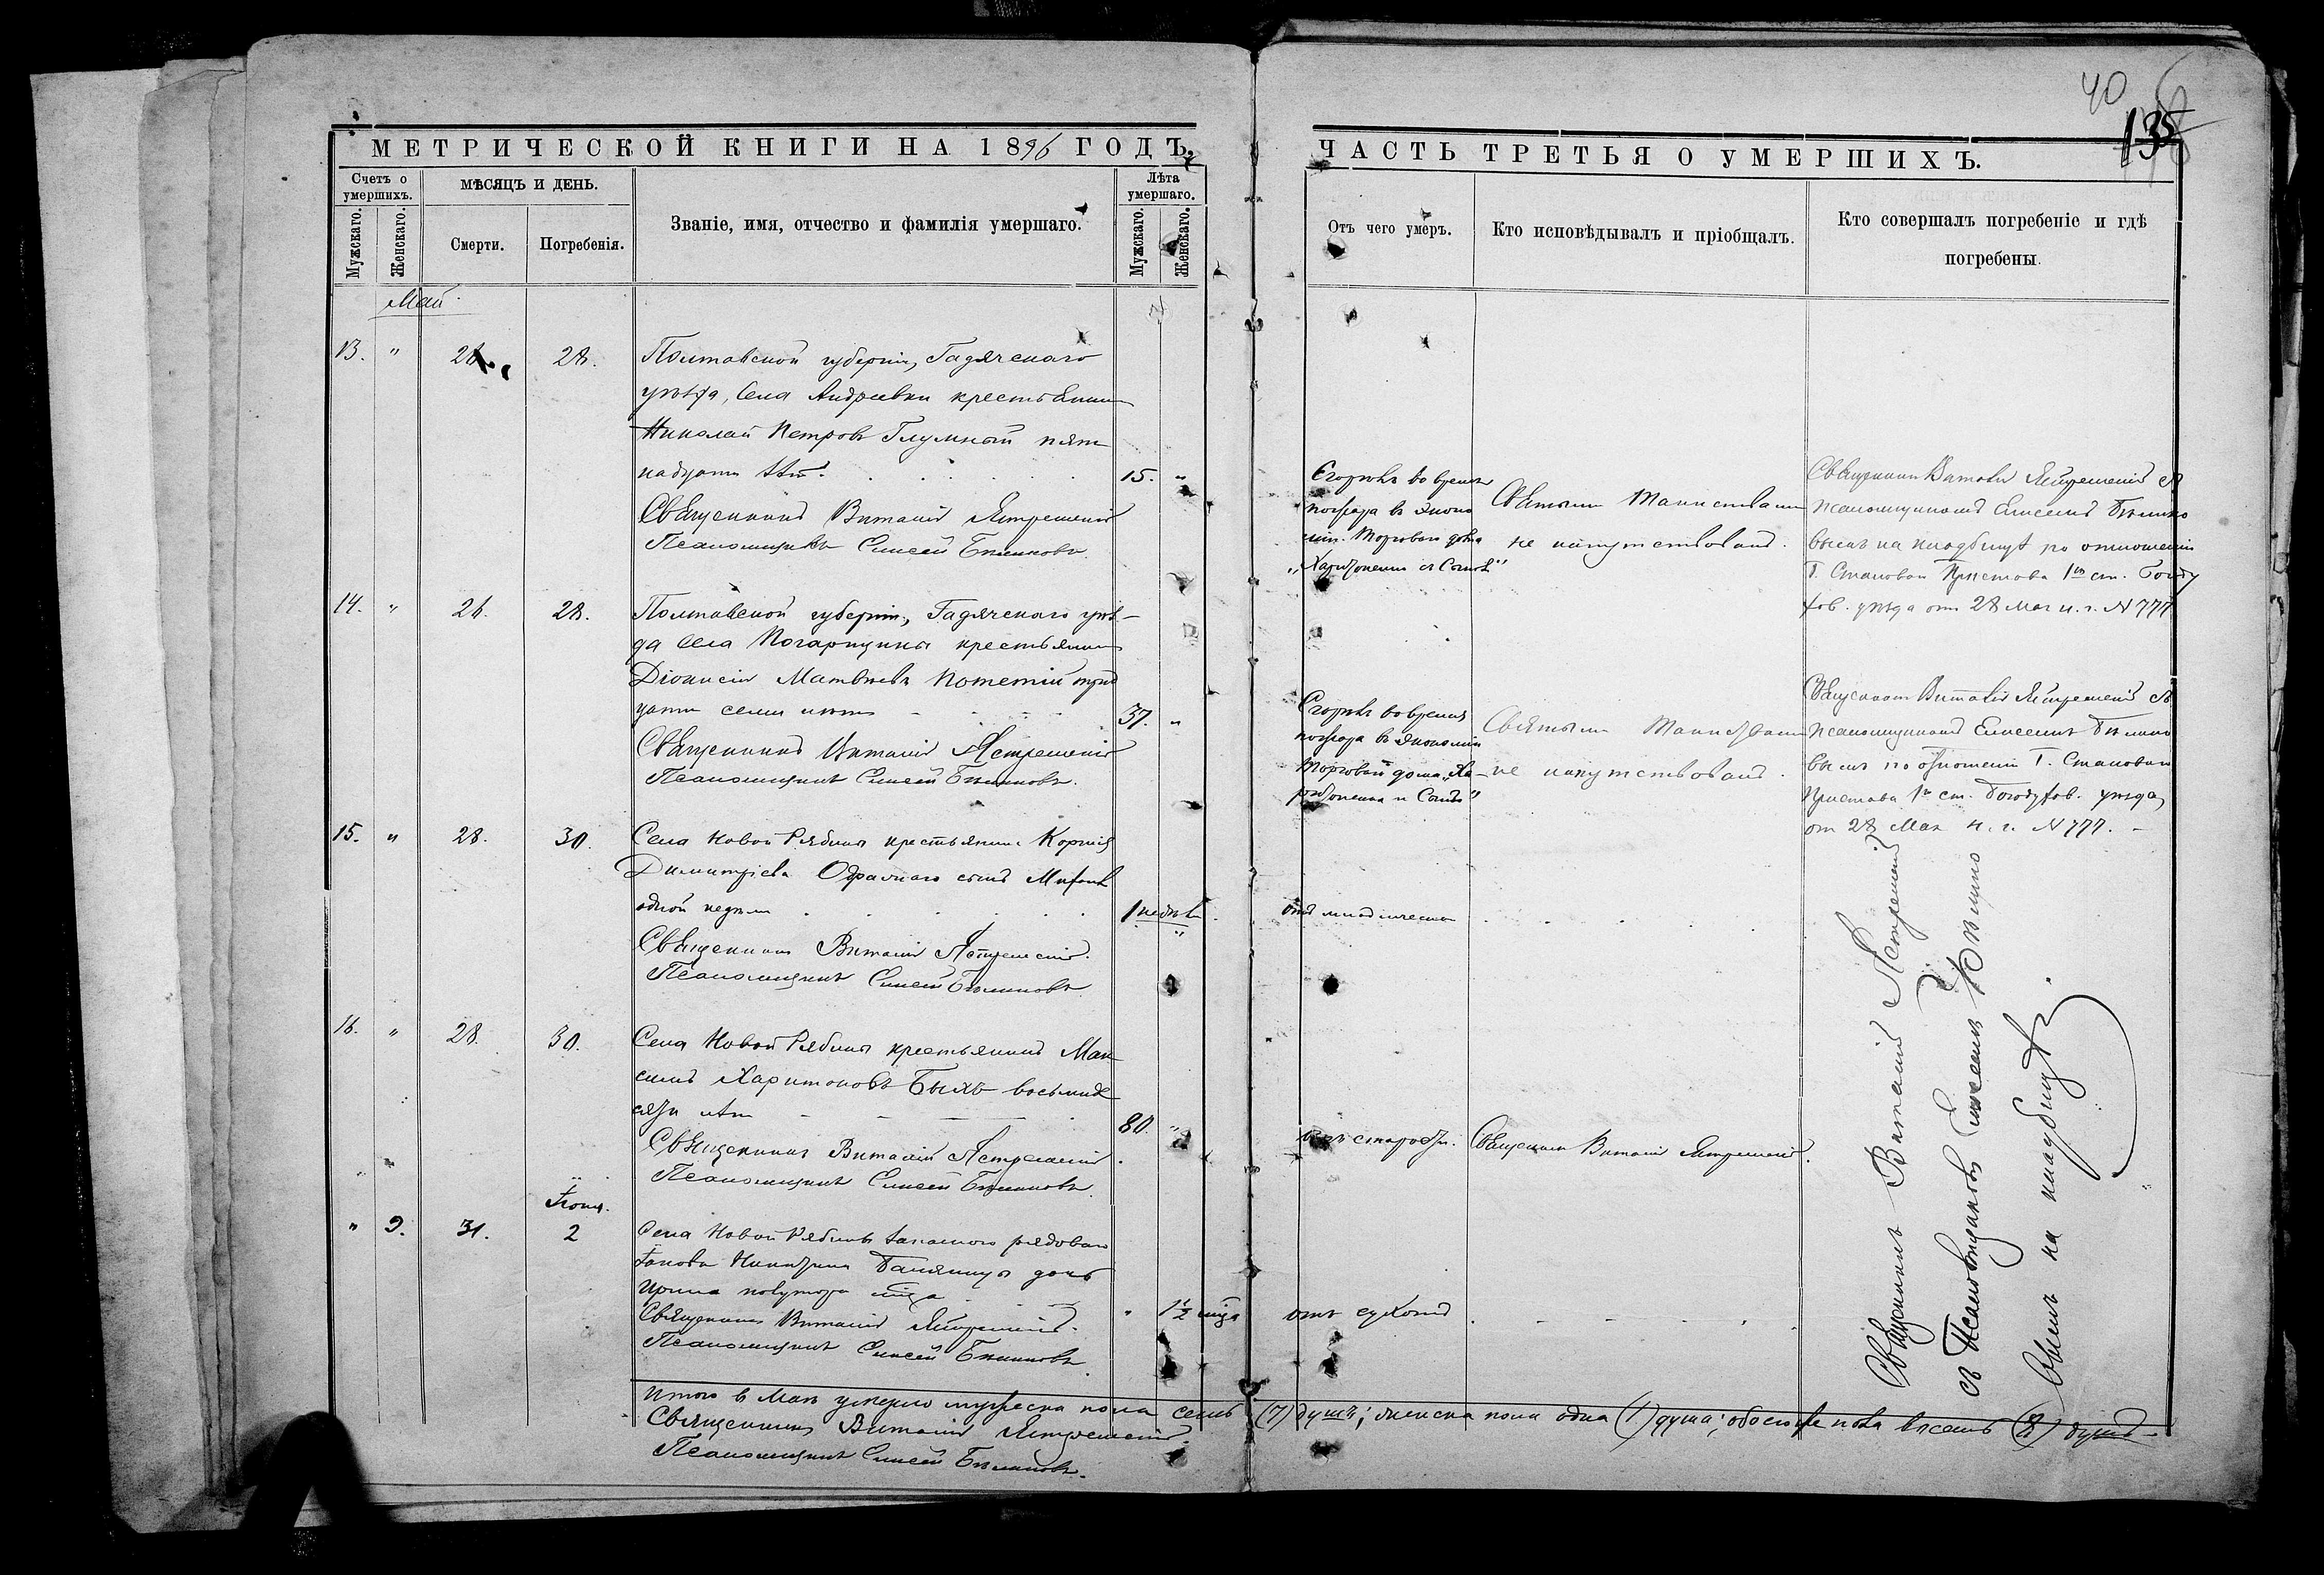 40
135
МЕТРИЧЕСКОЙ КНИГИ НА 1896 ГОДЪ.
Счетъ о умершихъ.
Мужскаго.
Женскаго.
МѢСЯЦЪ И ДЕНЬ.
Смерти.
Погребенія.
Званіе, имя, отчество и фамилія умершаго.
Лѣта умершаго.
Мужскаго.
Женскаго.
ЧАСТЬ ТРЕТЬЯ О УМЕРШИХЪ.
Отъ чего умеръ.
Кто исповѣдывалъ и пріобщалъ.
Кто совершалъ погребеніе и гдѣ
погребены.
Май
13. " 26. 28.
Полтавской губерніи, Гадячскаго
уѣзда, села Андреевки крестьянинъ
Николай Петровъ Глумный пят
надцати лѣтъ. 15. "
Священникъ Виталій Ястремскій
Псаломщикъ Елисей
Сгорѣлъ во время
пожара въ эконо
міи Торговаго дома
„Харитоненка и Сынъ"
Святыми Таинствами
не напутствованъ.
Священникъ Виталій Ястремскій съ
псаломщикомъ Елисеемъ
на кладбищѣ по отношенію
Г. Становаго Пристава 1го ст. Богоду
хов. уѣзда отъ 28 Мая н. г. № 777
14. " 26. 28.
Полтавской губерніи, Гадячскаго уѣз-
да села Погарщины крестьянинъ
Діонисій Матвѣевъ трид
цати семи лѣтъ 37. "
Священникъ Виталій Ястремскій
Псаломщикъ Елисей
Сгорѣлъ во время
пожара въ экономіи
Торговаго дома „Ха-
ритоненка и Сынъ"
Святыми Таинствами
не напутствованъ.
Священникъ Виталій Ястремскій съ
псаломщикомъ Елисеемъ
по отношенію Г. Становаго
Пристава 1го ст. Богодухов. уѣзда,
отъ 28 Мая н. г. № 777. -
15. " 28. 30.
Села Новой Рябины крестьянина Корнія
Димитріева сынъ
одной недѣли 1 недѣл. "
Священникъ Виталій Ястремскій.
Псаломщикъ Елисей
отъ младенчества
16. " 28. 30.
Села Новой Рябины крестьянинъ Мак
симъ Харитоновъ Быхъ восьмиде
сяти лѣтъ 80. "
Священникъ Виталій Ястремскій.
Псаломщикъ Елисей
отъ старости.
Священникъ Виталій Ястремскій.
Іюня.
" 9. 31. 2
Села Новой Рябины запаснаго рядоваго
Іакова дочь
Ирина полутора мца " 1½ мца
Священникъ Виталій Ястремскій.
Псаломщикъ Елисей
отъ сухотъ
Священникъ Виталій Ястремскій
съ Псаломщикомъ Елисеемъ
на кладбищѣ.
Итого въ Маѣ умерло мужеска пола семь (7) душъ; женска пола одна (1) душа; обоего же пола восемь (8) душъ -
Священникъ Виталій Ястремскій.
Псаломщикъ Елисей